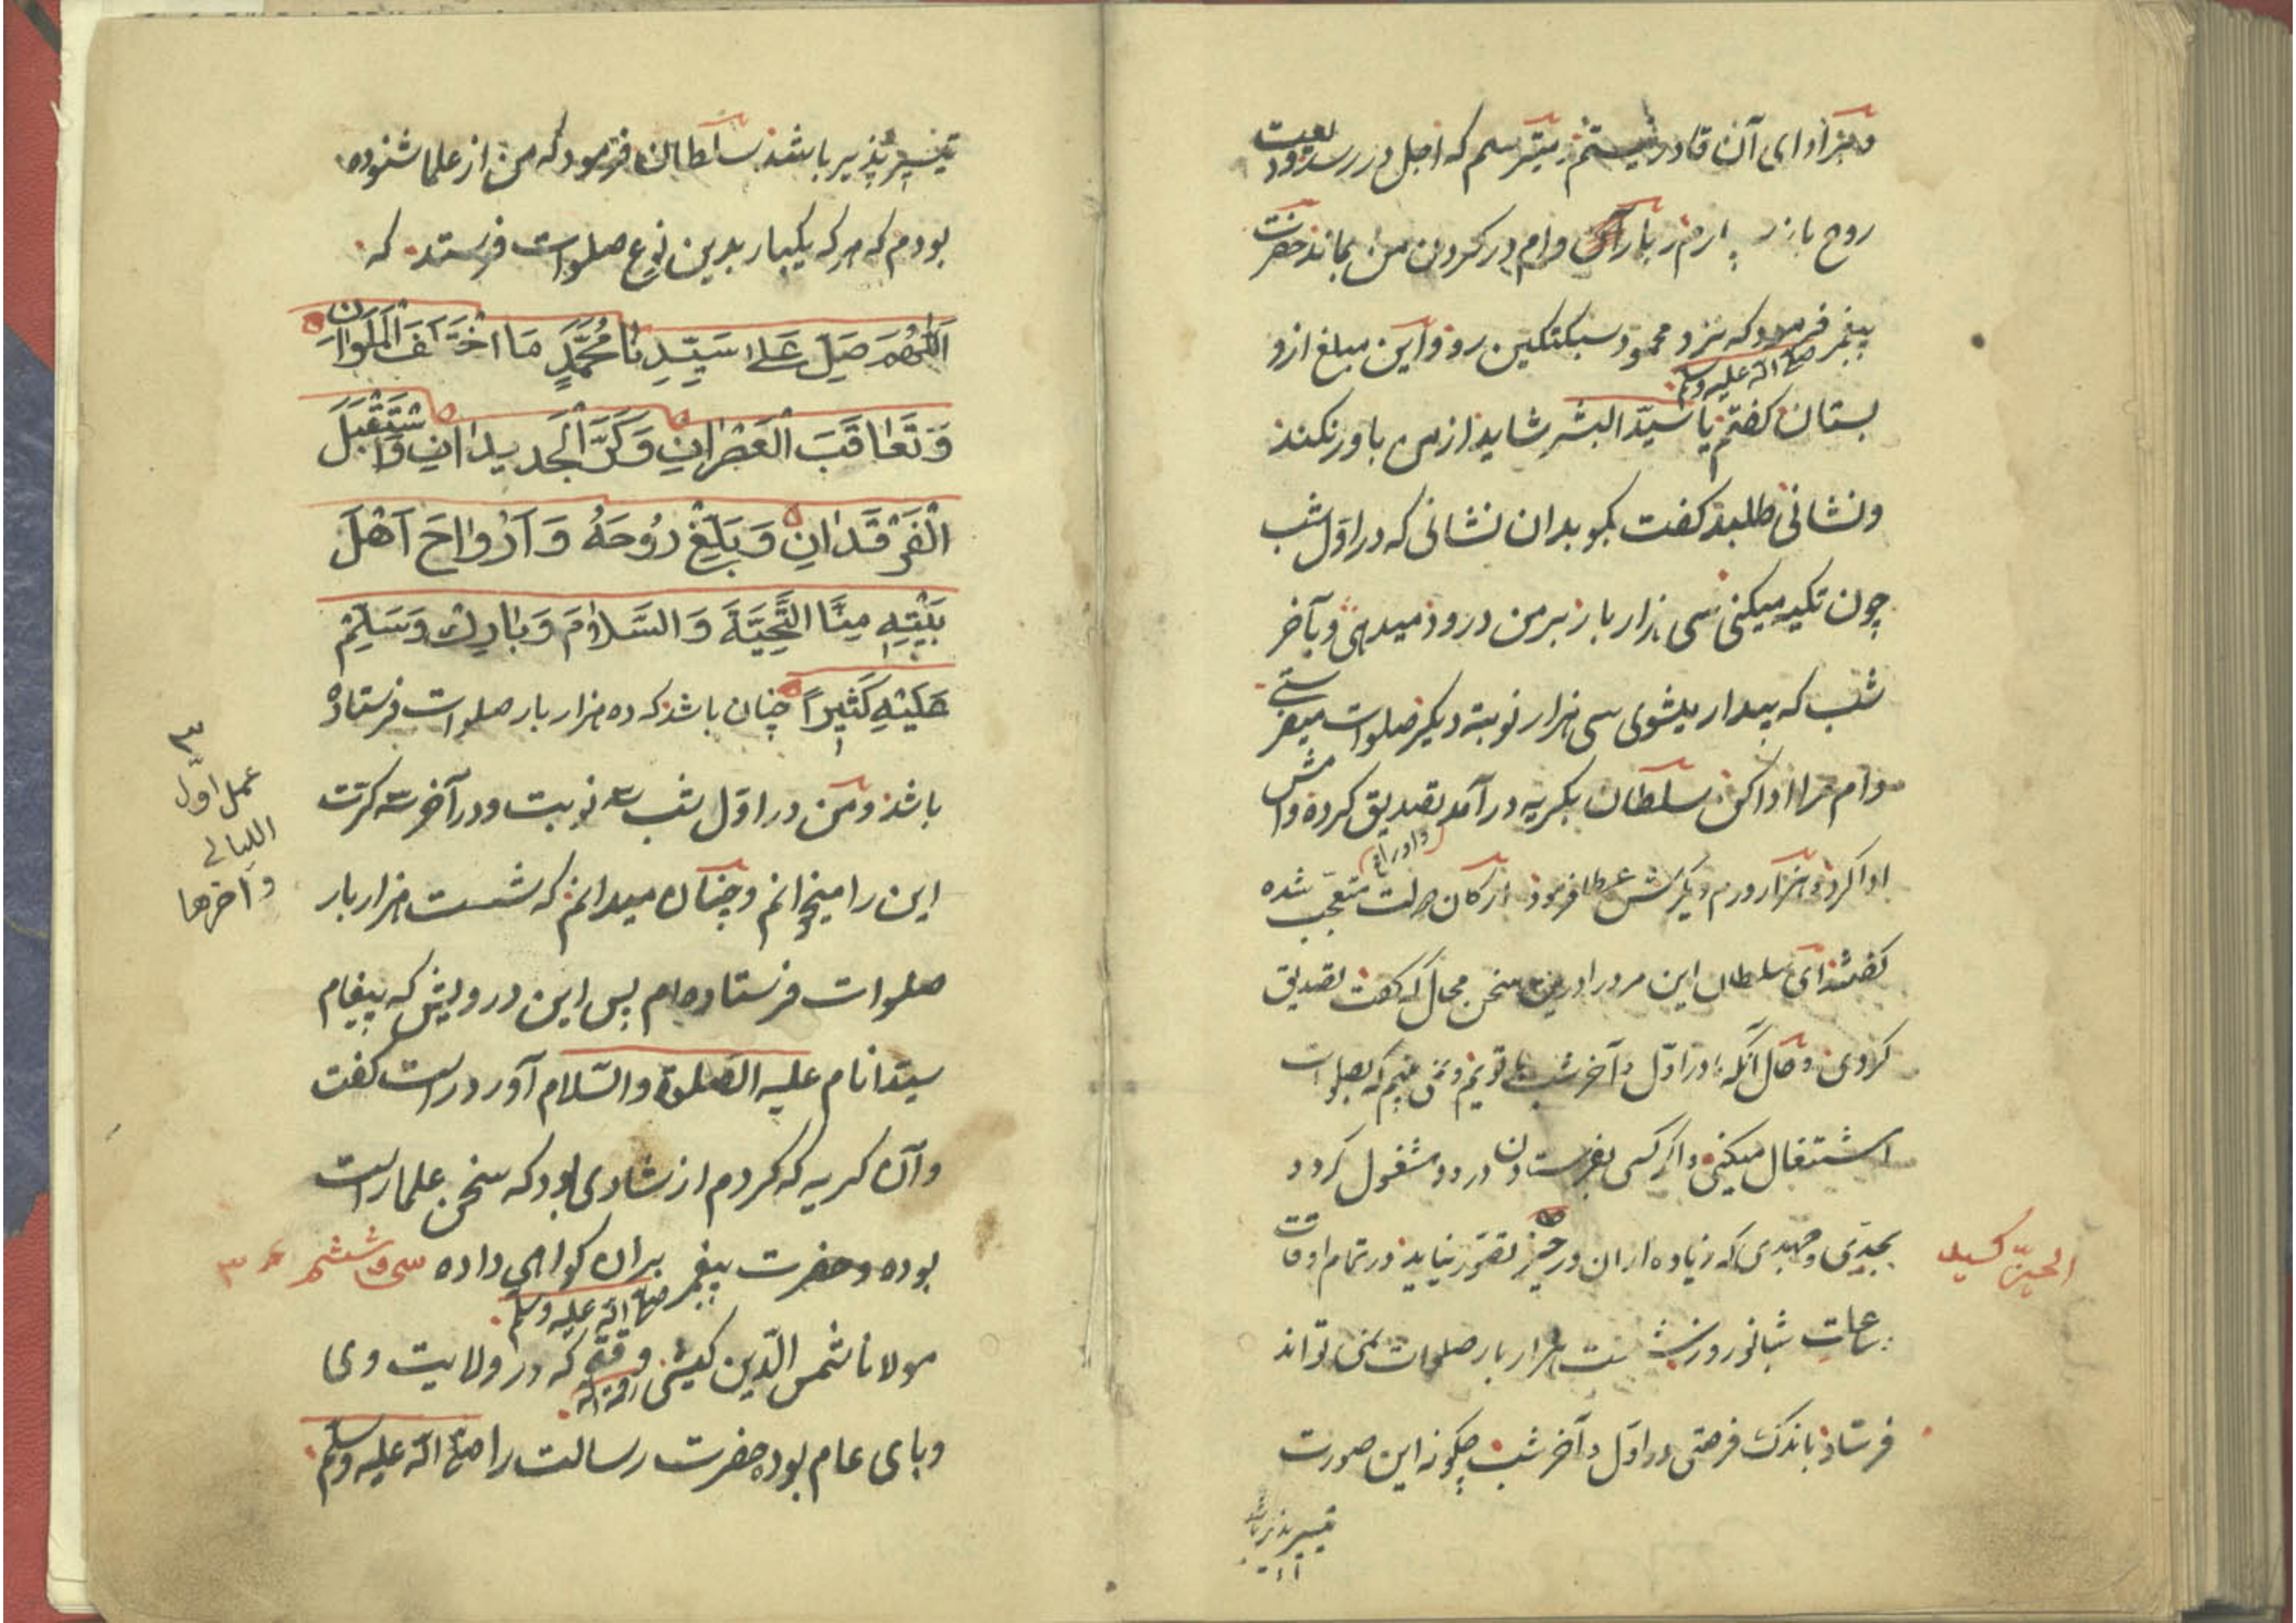 و بر ادای آن قادر نیستم میترسم که اجل در رسد ودیعت
روح باز سپارم و بار آن وام در کردن من بماند حضرت
پیغمبر صلی الله علیه وسلم فرمود که نزد محمود سبکتکین رو و این مبلغ ازو
بستان کفتم یا سید البشر شاید از من باور نکند
و نشانی طلبد کفت بکو بدان نشانی که در اول شب
چون تکیه میکنی سی هزار بار بر من درود میدهی و بآخر
شب که بیدار میشوی سی هزار نوبت دیکر صلوات میفرستی
وام مرا ادا کن سلطان بکریه درآمد تصدیق کرده وامش
ادا کرد و هزار درم دیکرش عطا فرمود ارکان دولت متعجب شده
کفتند ای سلطان این مرد را درین سخن محال که کفت تصدیق
کردی و حال آنکه ما در اول و آخر شب با توییم و نمی بینیم که بصلوات
اشتغال میکنی و اکر کسی بفرستادن درود مشغول کردد
بجدی و جهدی که زیاده از آن در حیز تصور نیاید در تمام اوقات
ساعات شبانروز شصت هزار بار صلوات نمی تواند
فرستاد باندک فرصتی در اول و آخر شب چکونه این صورت
تیسیر پذیر باشد
تیسیر پذیر باشد سلطان فرمود که من از علما شنوده
بودم که هر که یکبار بدین نوع صلوات فرستد که
اَللّٰهُمَّ صَلِّ عَلٰى سَيِّدِنَا مُحَمَّدٍ مَا اخْتَلَفَ الْمَلَوَانِ
وَتَعَاقَبَ الْعَصْرَانِ وَكَرَّ الْجَدِيدَانِ وَاسْتَقْبَلَ
الْفَرْقَدَانِ وَبَلِّغْ رُوحَهُ وَاَرْوَاحَ اَهْلِ
بَيْتِهِ مِنَّا التَّحِيَّةَ وَالسَّلَامَ وَبَارِكْ وَسَلِّمْ
عَلَيْهِ كَثِيرًا چنان باشد که ده هزار بار صلوات فرستاده
باشد و من در اول شب سه نوبت و در آخر سه کرت
این را میخوانم و چنان میدانم که شست هزار بار
صلوات فرستاده ام پس این درویش که پیغام
سید انام علیه الصلوة والسلام آورد راست کفت
و آن کریه که کردم از شادی بود که سخن علما راست
بوده و حضرت پیغمبر صلی الله علیه وسلم بران کواهی داده سی و ششم
مولانا شمس الدین کیشی رحمه الله وقتی که در ولایت وی
وبای عام بوده حضرت رسالت را صلی الله علیه وسلم
عمل اول
اللیالی
و آخرها